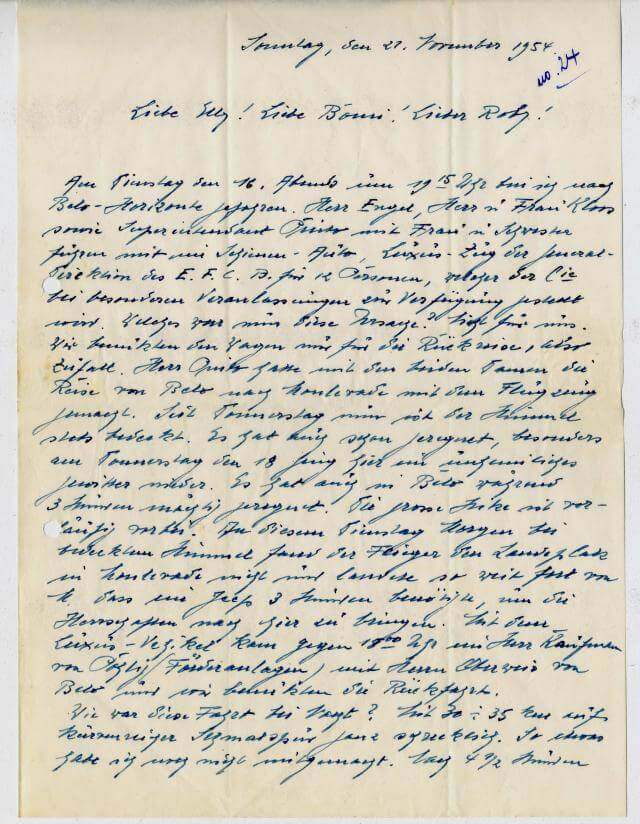 Sonntag, den 21. November 1954.
no. 24
Liebe Elly! Liebe Bömi! Lieber Roby!
Am Dienstag den 16. Abends um 19 15 Uhr bin ich nach
Belo-Horizonte gefahren. Herr Engel, Herr u Frau Kloos
sowie Superintendant Pinto mit Frau u Schwester
fuhren mit im Schienen-Auto, Luxus-Zug der General-
direktion des E. F. C. B. für 12 Personen, welcher der Cie
bei besonderen Veranlassungen zur Verfügung gestellt
wird. Welches war nun diese Ursache? Nicht für uns.
Wir benützten den Wagen nur für die Rückreise, also
Zufall. Herr Pinto hatte mit den beiden Damen die
Reise von Belo nach Monlevade mit dem Flugzeug
gemacht. Seit Donnerstag nun ist der Himmel
stets bedeckt. Es hat auch schon geregnet, besonders
am Donnerstag den 18 ging hier ein unheimliches
Gewitter nieder. Es hat auch in Belo während
3 Stunden mächtig geregnet. Die grosse Hitze ist vor-
läufig vorbei. An diesem Dienstag Morgen bei
bedecktem Himmel fand der Flieger den Landeplatz
in Monlevade nicht und landete so weit fort von
M. dass ein Jeep 3 Stunden benötigte, um die
Herrschaften nach hier zu bringen. Mit dem
Luxus-Vehikel kam gegen 18 00 Uhr ein Herr Kaufmann
von (Förderanlagen) mit Herrn Oberweis von
Belo und wir benützten die Rückfahrt.
Wie war diese Fahrt bei Nacht? Mit 30 ÷ 35 km auf
kurvenreicher Schmalspur ganz schrecklich. So etwas
habe ich noch nicht mitgemacht. Nach 4 1/2 Stunden